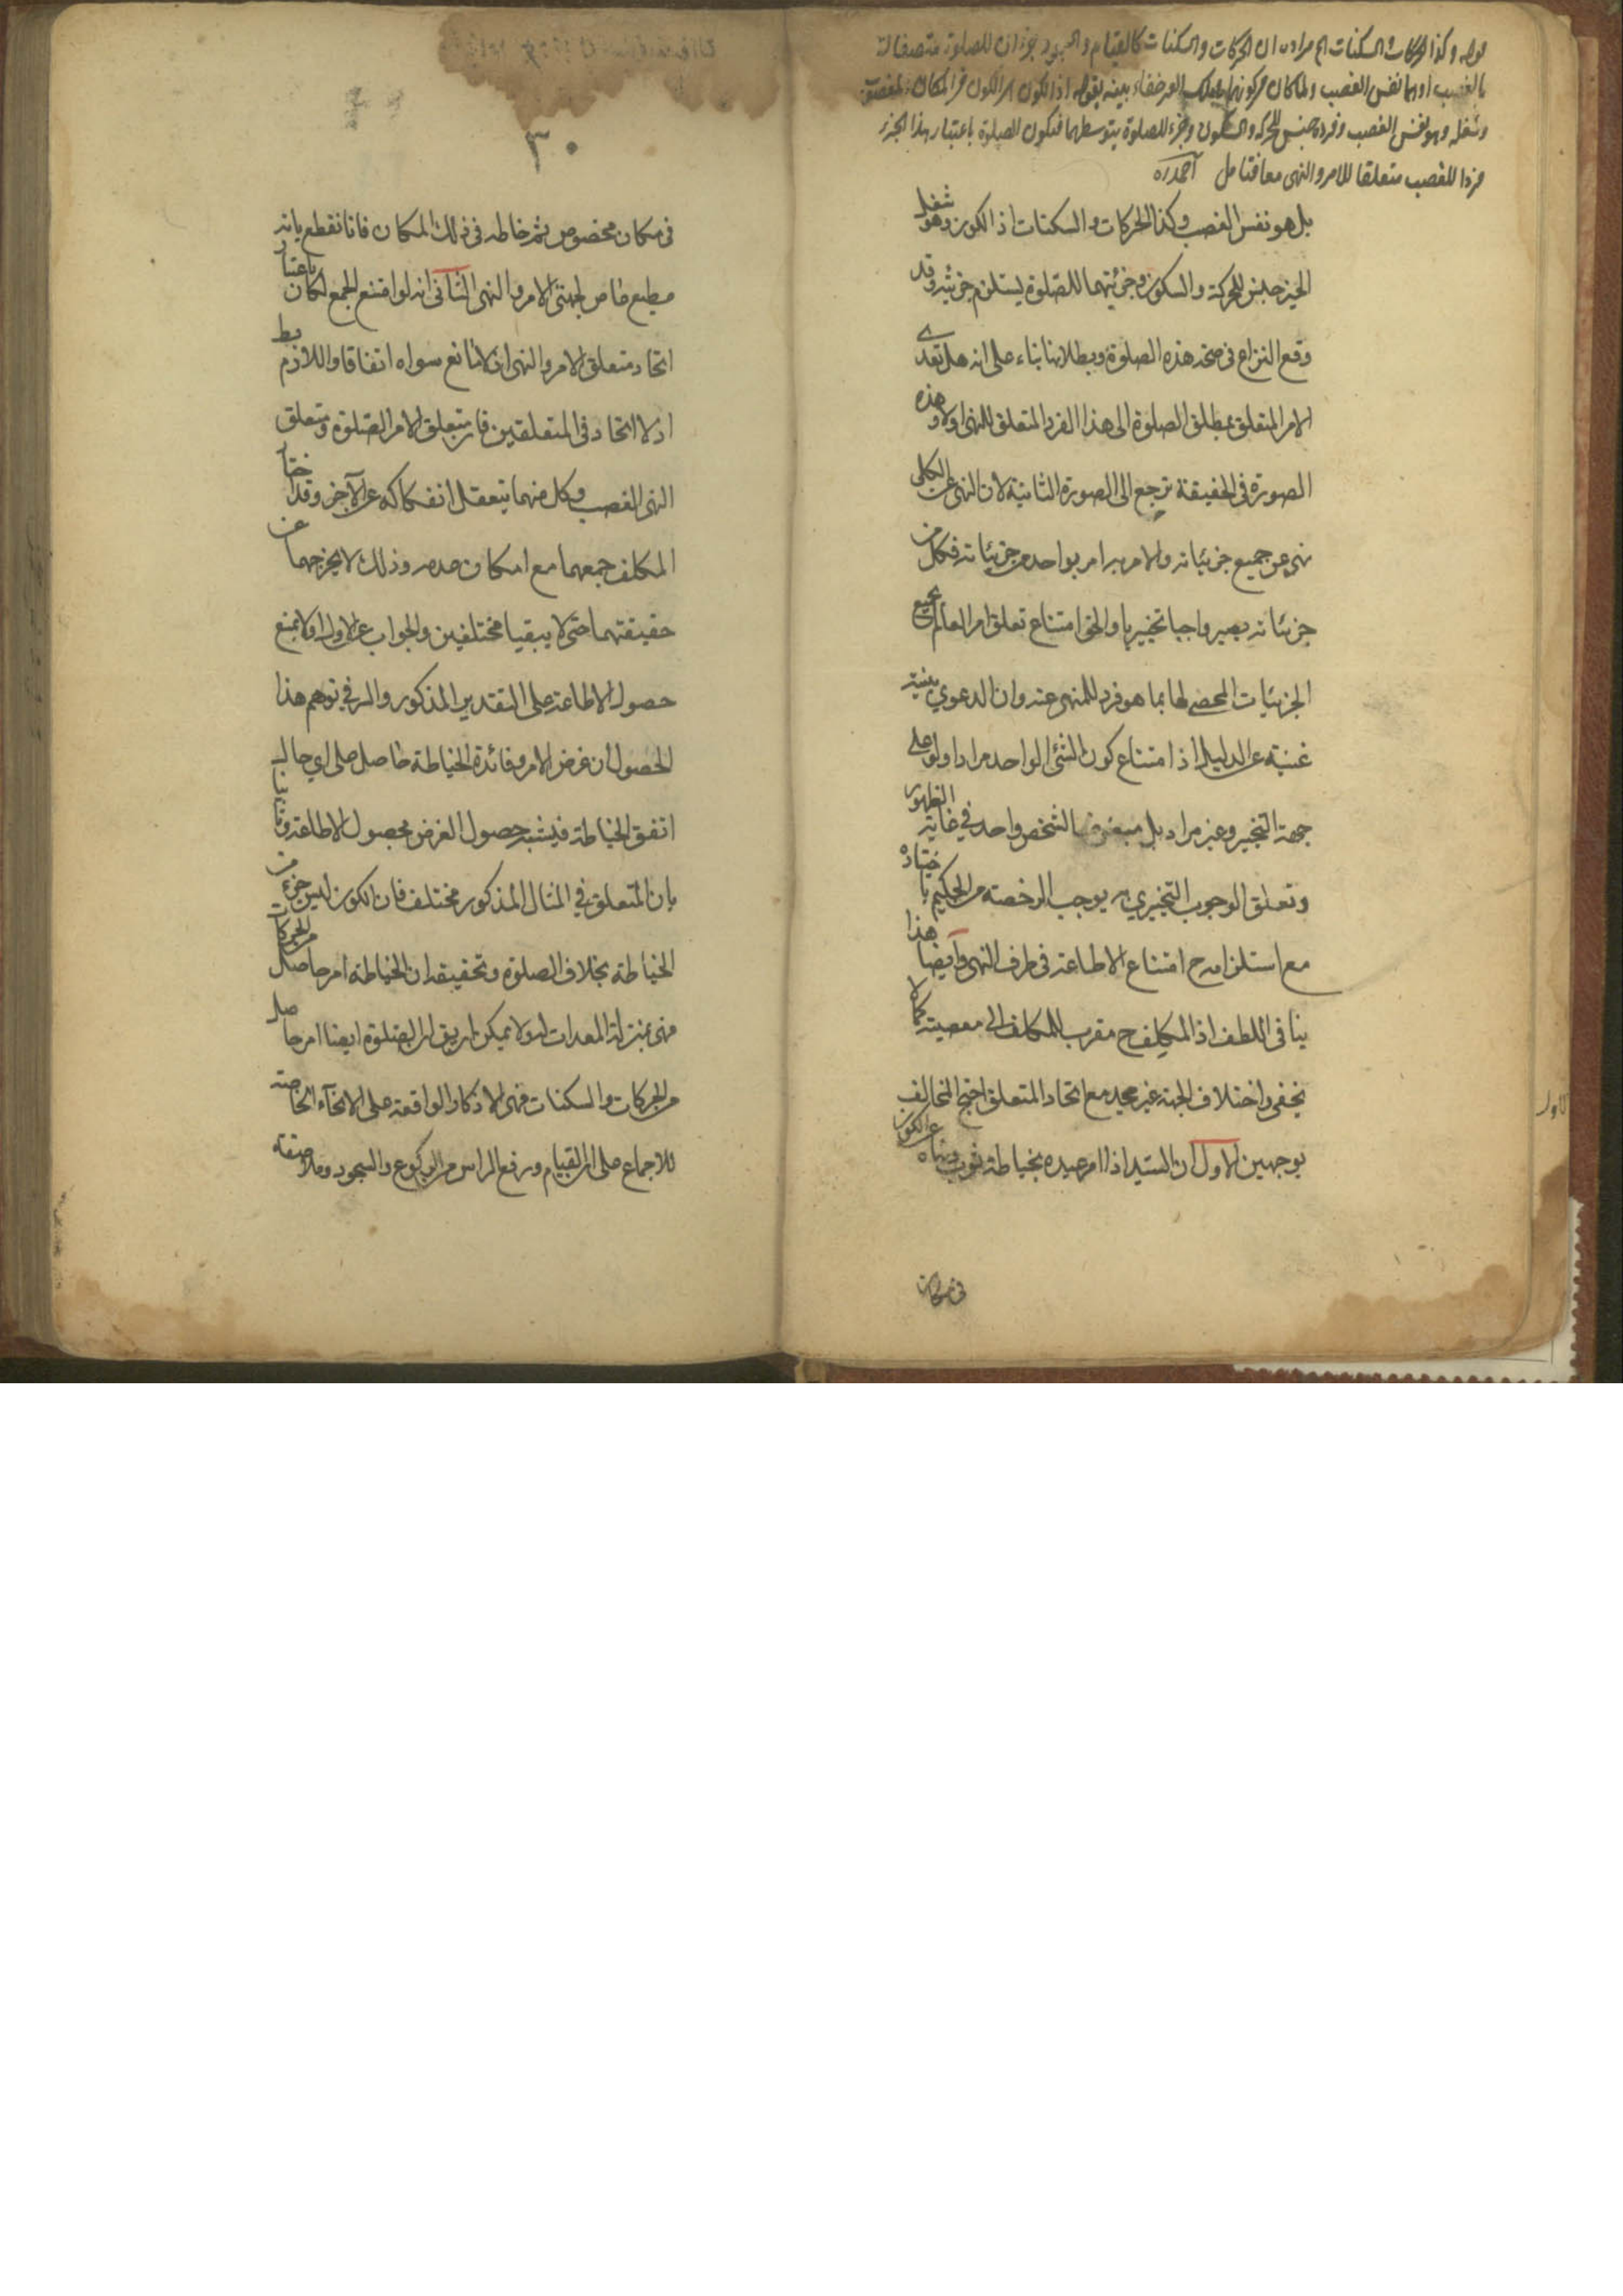 قوله وكذا الحركات والسكنات الخ مراده ان الحركات والسكنات كالقيام والسجود جزءان للصلوة متصفان
بالغصب او هما نفس الغصب ولما كان في كونهما خفاء بينه بقوله اذ الكون اى الكون فى المكان المغصوب
وشغله وهو نفس الغصب وفرده جنس للحركة والسكون وجزء للصلوة بتوسطهما فتكون الصلوة باعتبار هذا الجزء
فردا للغصب متعلقا للامر والنهى معا فتامل
بل هو نفس الغصب وكذا الحركات والسكنات اذ الكون وهو شغل
الحيز جنس للحركة والسكون وجزئيتهما للصلوة يستلزم جزئيته وقد
وقع النزاع فى صحة هذه الصلوة وبطلانها بناء على انه هل تعدى
الامر المتعلق بمطلق الصلوة الى هذا الفرد المتعلق للنهى او لا وهذه
الصورة فى الحقيقة ترجع الى الصورة الثانية لان النهى عن الكلى
نهى عن جميع جزئياته والامر به امر بواحد من جزئياته فكل من
جزئياته يصير واجبا تخييريا والحق امتناع تعلق امر العالم بجميع
الجزئيات المحصى لها بما هو فرد للمنهى عنه وان الدعوي بينة
غنية عن الدليل اذ امتناع كون الشئ الواحد مرادا ولو على
جهة التخيير وغير مراد بل مبغوضا لشخص واحد في غاية الظهور
وتعلق الوجوب التخييري به يوجب الرخصة من الحكيم باختياره
مع استلزامه ح امتناع الاطاعة فى طرف النهى وايضا هذا
ينافى اللطف اذ المكلف ح مقرب للمكلف الى معصيته كما لا
يخفى واختلاف الجهة غير مجد مع اتحاد المتعلق احتج المخالف
بوجهين الاول ان السيد اذا امر عبده بخياطة ثوب ونهاه عن الكون
فى مكان
٣٠
فى مكان مخصوص ثم خاطه فى ذلك المكان فانا نقطع بانه
مطيع عاص لجهتى الامر والنهى الثانى انه لو امتنع الجمع لكان باعتبار
اتحاد متعلق الامر والنهى اذ لا مانع سواه اتفاقا واللازم بط
اذ لا اتحاد فى المتعلقين فان متعلق الامر الصلوة ومتعلق
النهى الغصب وكل منهما يتعقل انفكاكه عن الآخر وقد اختار
المكلف جمعهما مع امكان عدمه وذلك لا يخرجهما عن
حقيقتهما حتى لا يبقيا مختلفين والجواب عن الاول اولا بمنع
حصول الاطاعة على التقدير المذكور والسر في توهم هذا
الحصول ان غرض الامر وفائدة الخياطة حاصل على اي حال
اتفق الخياطة فيشتبه حصول الغرض بحصول الاطاعة وثانيا
بان المتعلق في المثال المذكور مختلف فان الكون ليس جزء من
الخياطة بخلاف الصلوة وتحقيقه ان الخياطة امر حاصل من الحركات
فهى بمنزلة المعدات لها ولا يمكن ان يقال ان الصلوة ايضا امر حاصل
من الحركات والسكنات فهى الاذكار الواقعة على الانحآء الخاصة
للاجماع على ان القيام ورفع الراس من الركوع والسجود وملاصقة